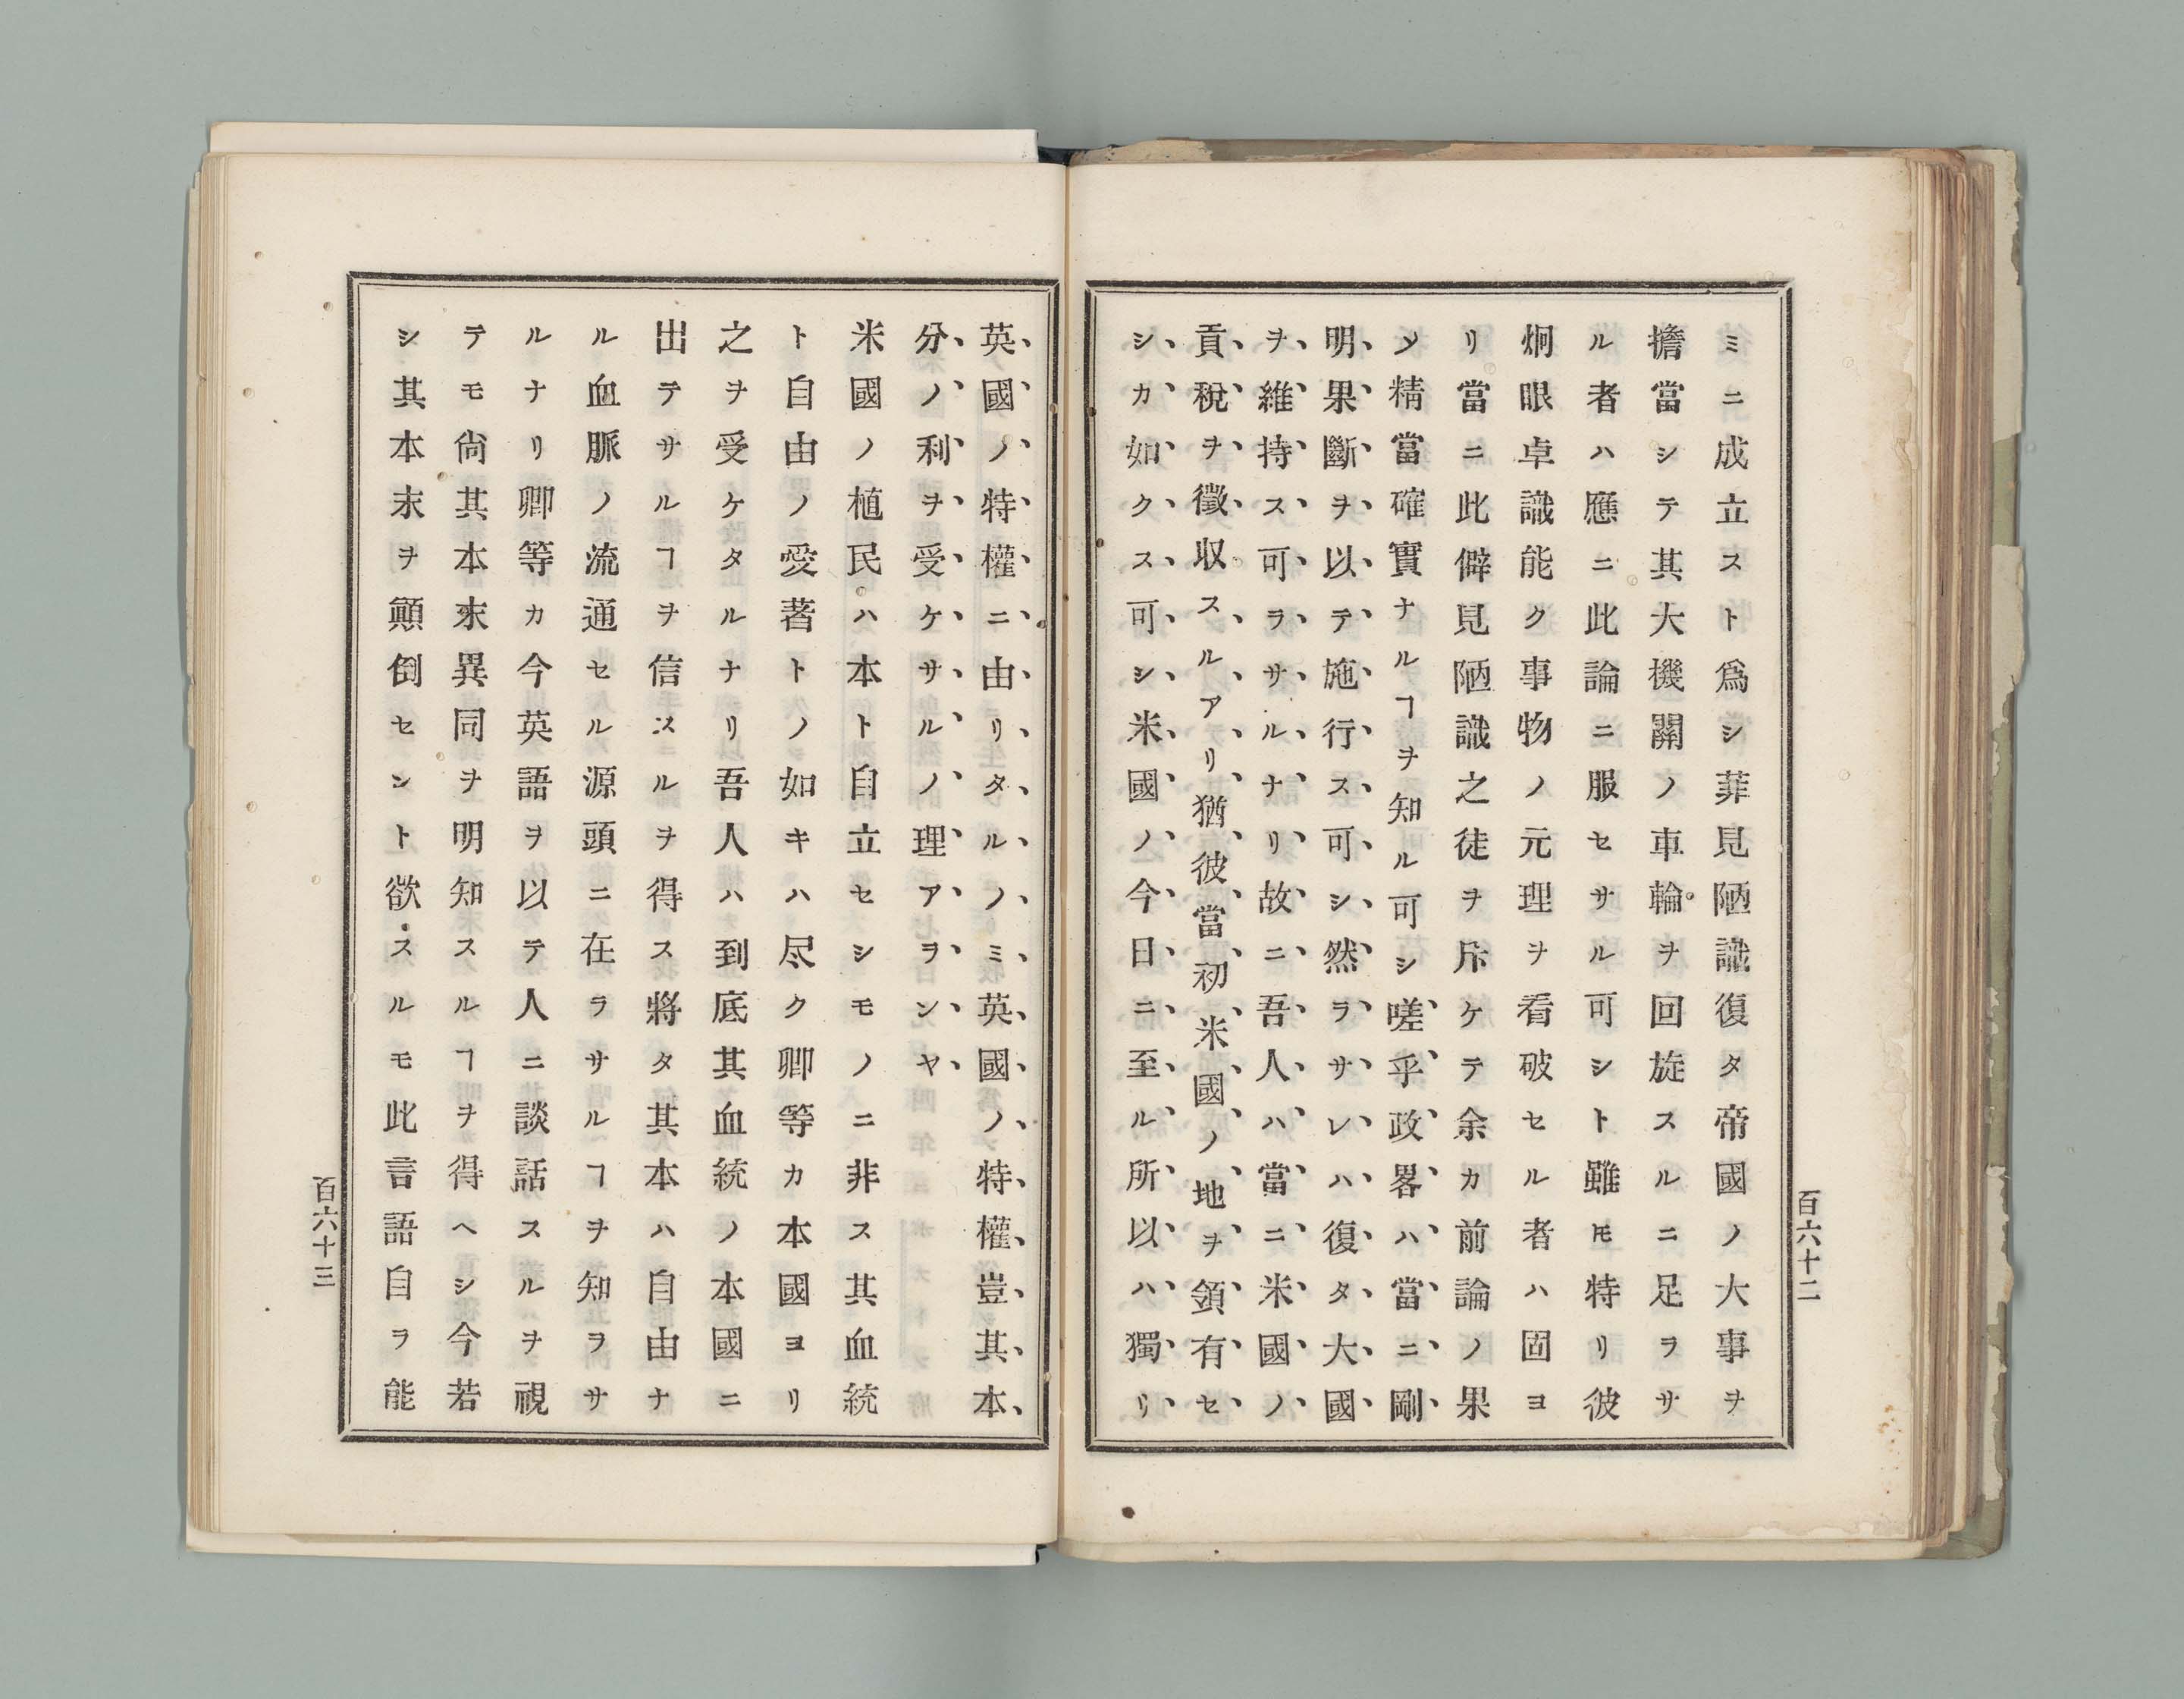 ミニ成立スト爲シ菲見陋識復タ帝國ノ大事ヲ
擔當シテ其大機關ノ車輪ヲ回旋スルニ足ラサ
ル者ハ應ニ此論ニ服セサル可シト雖𪜈特リ彼
炯眼卓識能ク事物ノ元理ヲ看破セル者ハ固ヨ
リ當ニ此僻見陋識之徒ヲ斥ケテ余カ前論ノ果
ソ精當確實ナルヿヲ知ル可シ嗟乎政畧ハ當ニ剛
明果斷ヲ以テ施行ス可シ然ラサレハ復タ大國
ヲ維持ス可ラサルナリ故ニ吾人ハ當ニ米國ノ
貢稅ヲ徵収スルアリ猶彼當初米國ノ地ヲ領有セ
シカ如クス可シ米國ノ今日ニ至ル所以ハ獨リ
百六十二
英國ノ特權ニ由リタルノミ英國ノ特權豈其本
分ノ利ヲ受ケサルノ理アヲンヤ
米國ノ植民ハ本ト自立セシモノニ非ス其血統
ト自由ノ愛著トノ如キハ尽ク卿等カ本國ヨリ
之ヲ受ケタルナリ吾人ハ到底其血統ノ本國ニ
出テサルヿヲ信スルヲ得ス將タ其本ハ自由ナ
ル血脈ノ流通セル源頭ニ在ラサルヿヲ知ヲサ
ルナリ卿等カ今英語ヲ以テ人ニ談話スルヲ視
テモ尙其本末異同ヲ明知スルヿヲ得ヘシ今若
シ其本末ヲ顚倒セント欲スルモ此言語自ラ能
百六十三